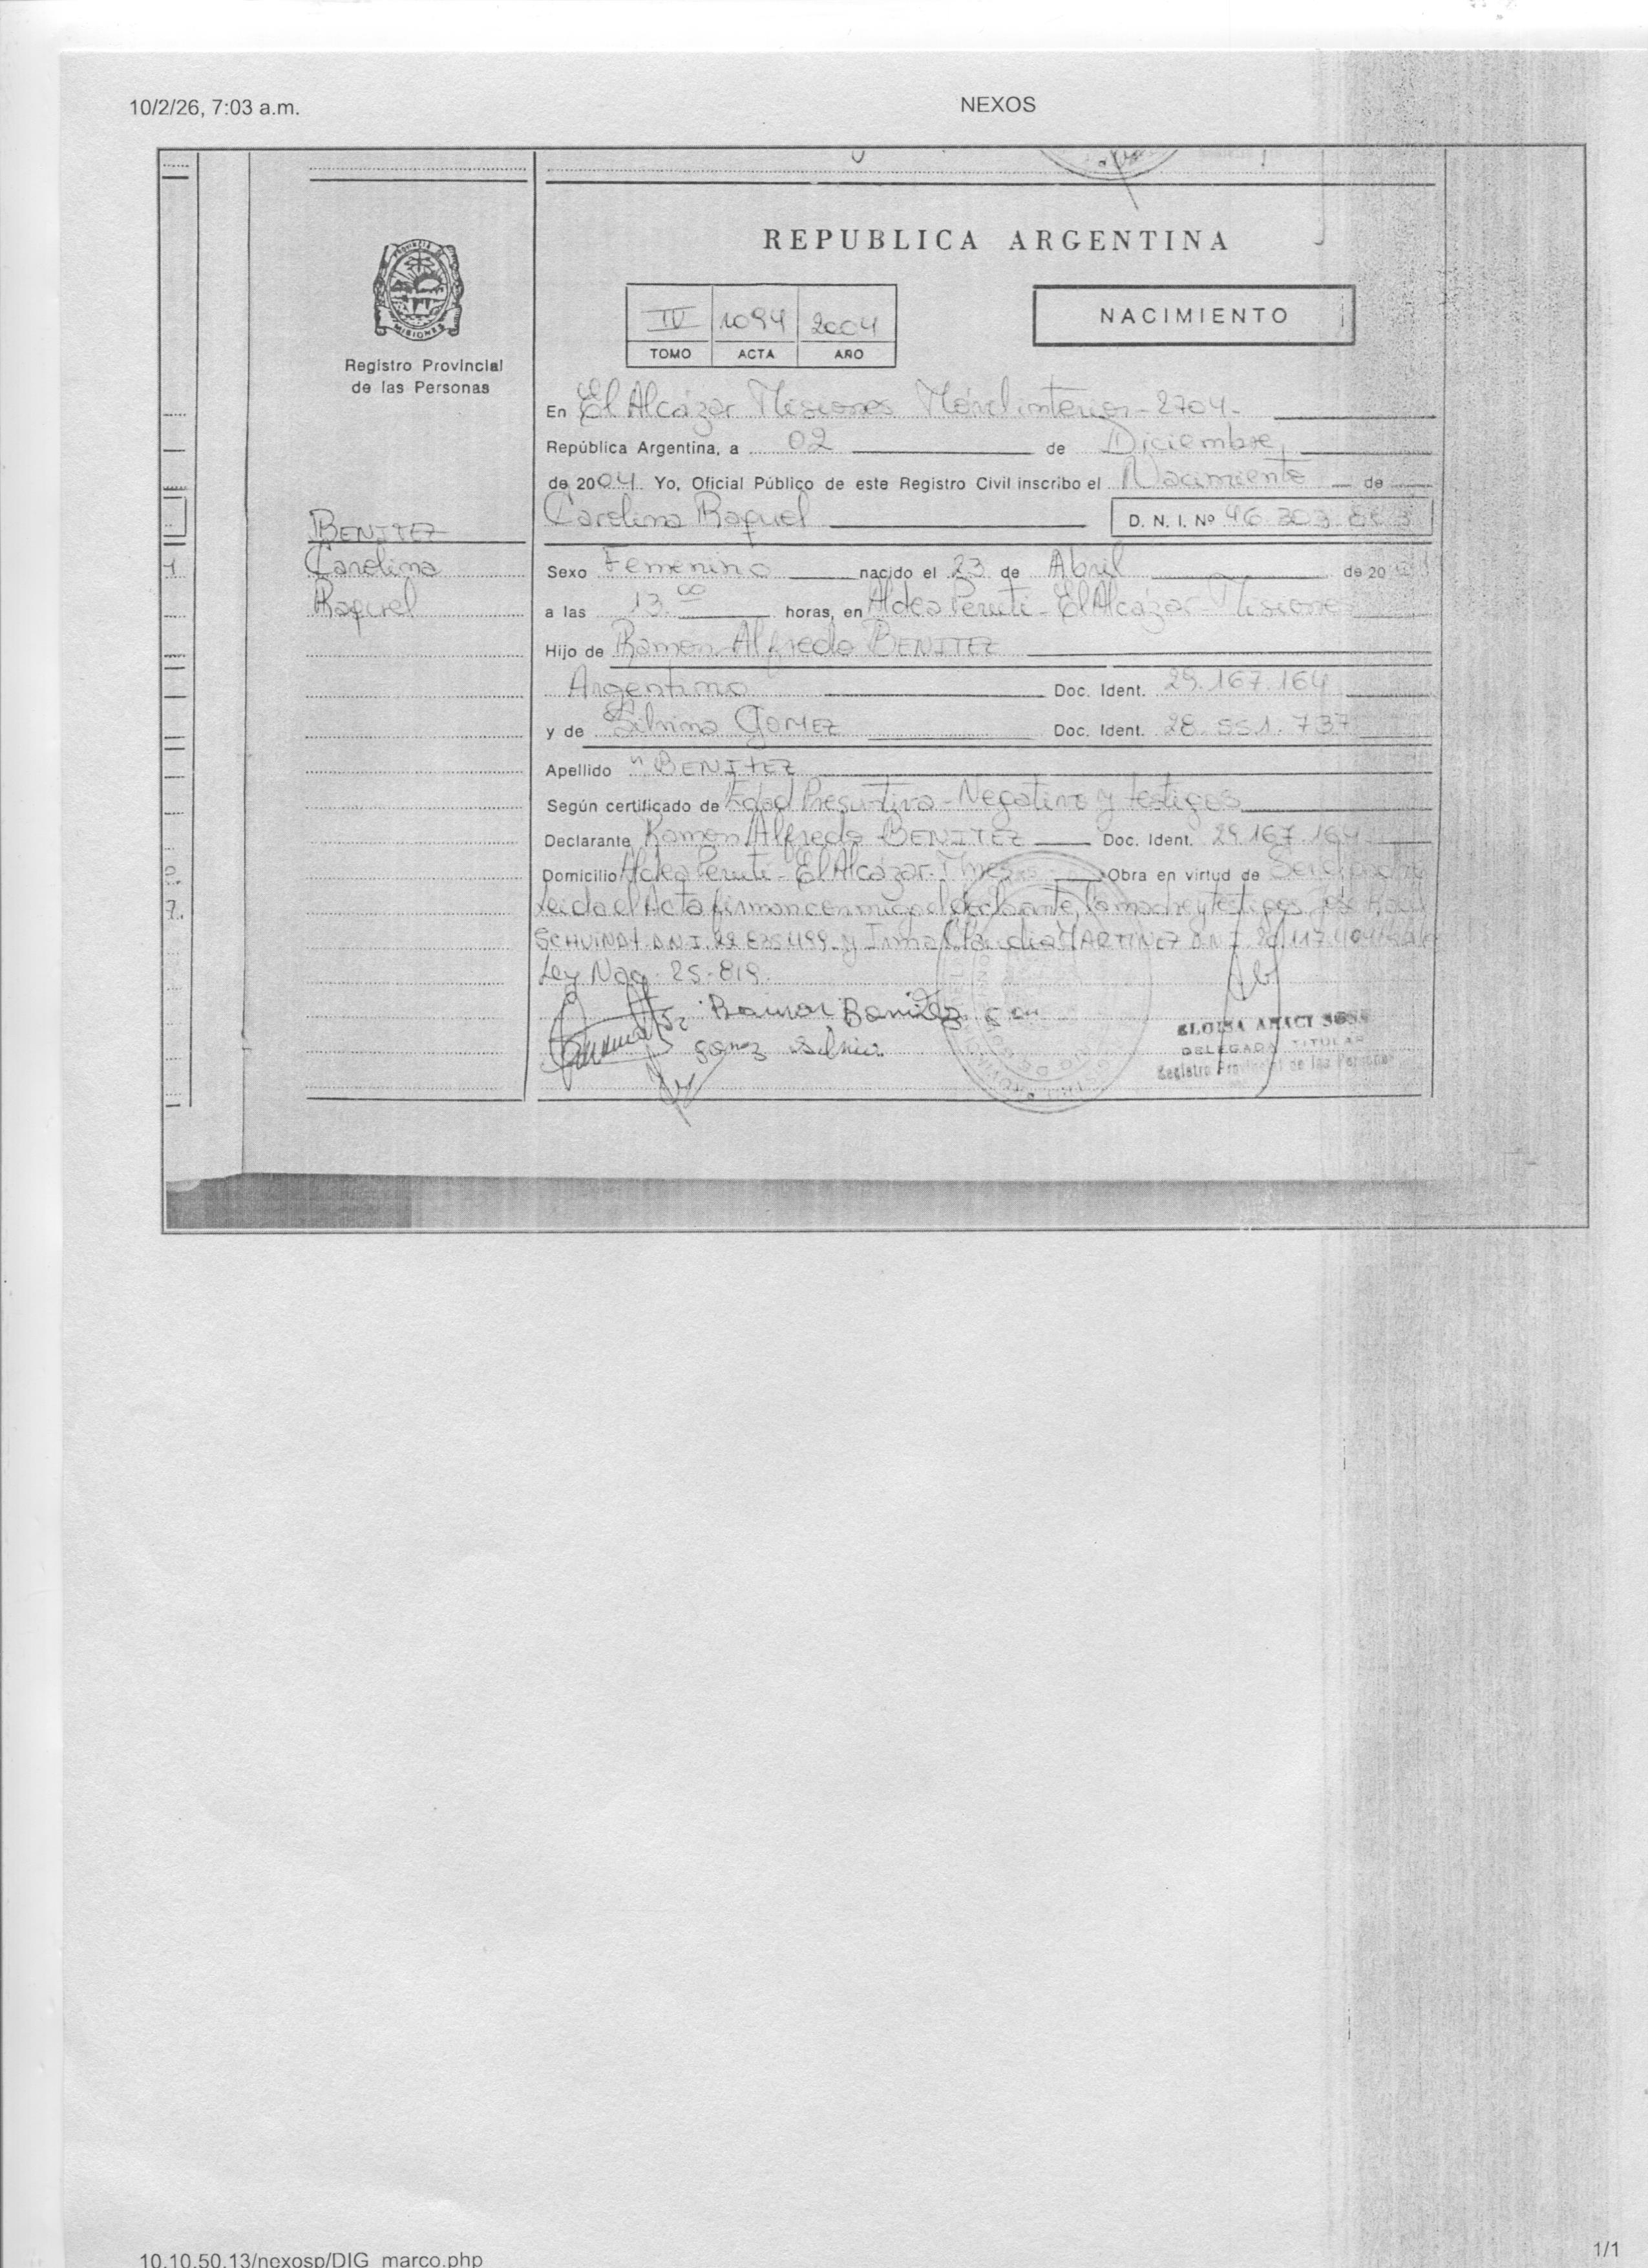 10/2/26, 7:03 a.m.
NEXOS
REPUBLICA ARGENTINA
PROVINCIA
MISIONES
Registro Provincial
de las Personas
IV 1094 2004
TOMO ACTA AÑO
NACIMIENTO
En El Alcázar Misiones Móvil interior - 2704 -
República Argentina, a 02 de Diciembre,
de 2004. Yo, Oficial Público de este Registro Civil inscribo el Nacimiento de
Carolina Raquel D. N. I. Nº 46.303.
BENITEZ
Carolina
Raquel
Sexo Femenino nacido el 23 de Abril de 20
a las 13.00 horas, en Aldea Peruti - El Alcázar - Misiones
Hijo de Ramon Alfredo BENITEZ
Argentino Doc. Ident. 29.167.164
y de Silvina GOMEZ Doc. Ident. 28.551.737
Apellido " BENITEZ
Según certificado de Edad Presuntiva - Negativo y testigos
Declarante Ramon Alfredo BENITEZ Doc. Ident. 29.167.164
Domicilio Aldea Peruti - El Alcázar - Mnes Obra en virtud de
Leida el Acta firman conmigo el declarante, la madre y testigos José
SCHVINDT D.N.I. y Irma Claudia MARTINEZ D.N.I.
Ley Nac. 25.819.
Ramon Benitez
gomez silvina
DELEGADA TITULAR
Registro Provincial de las Personas
10.10.50.13/nexosp/DIG_marco.php
1/1